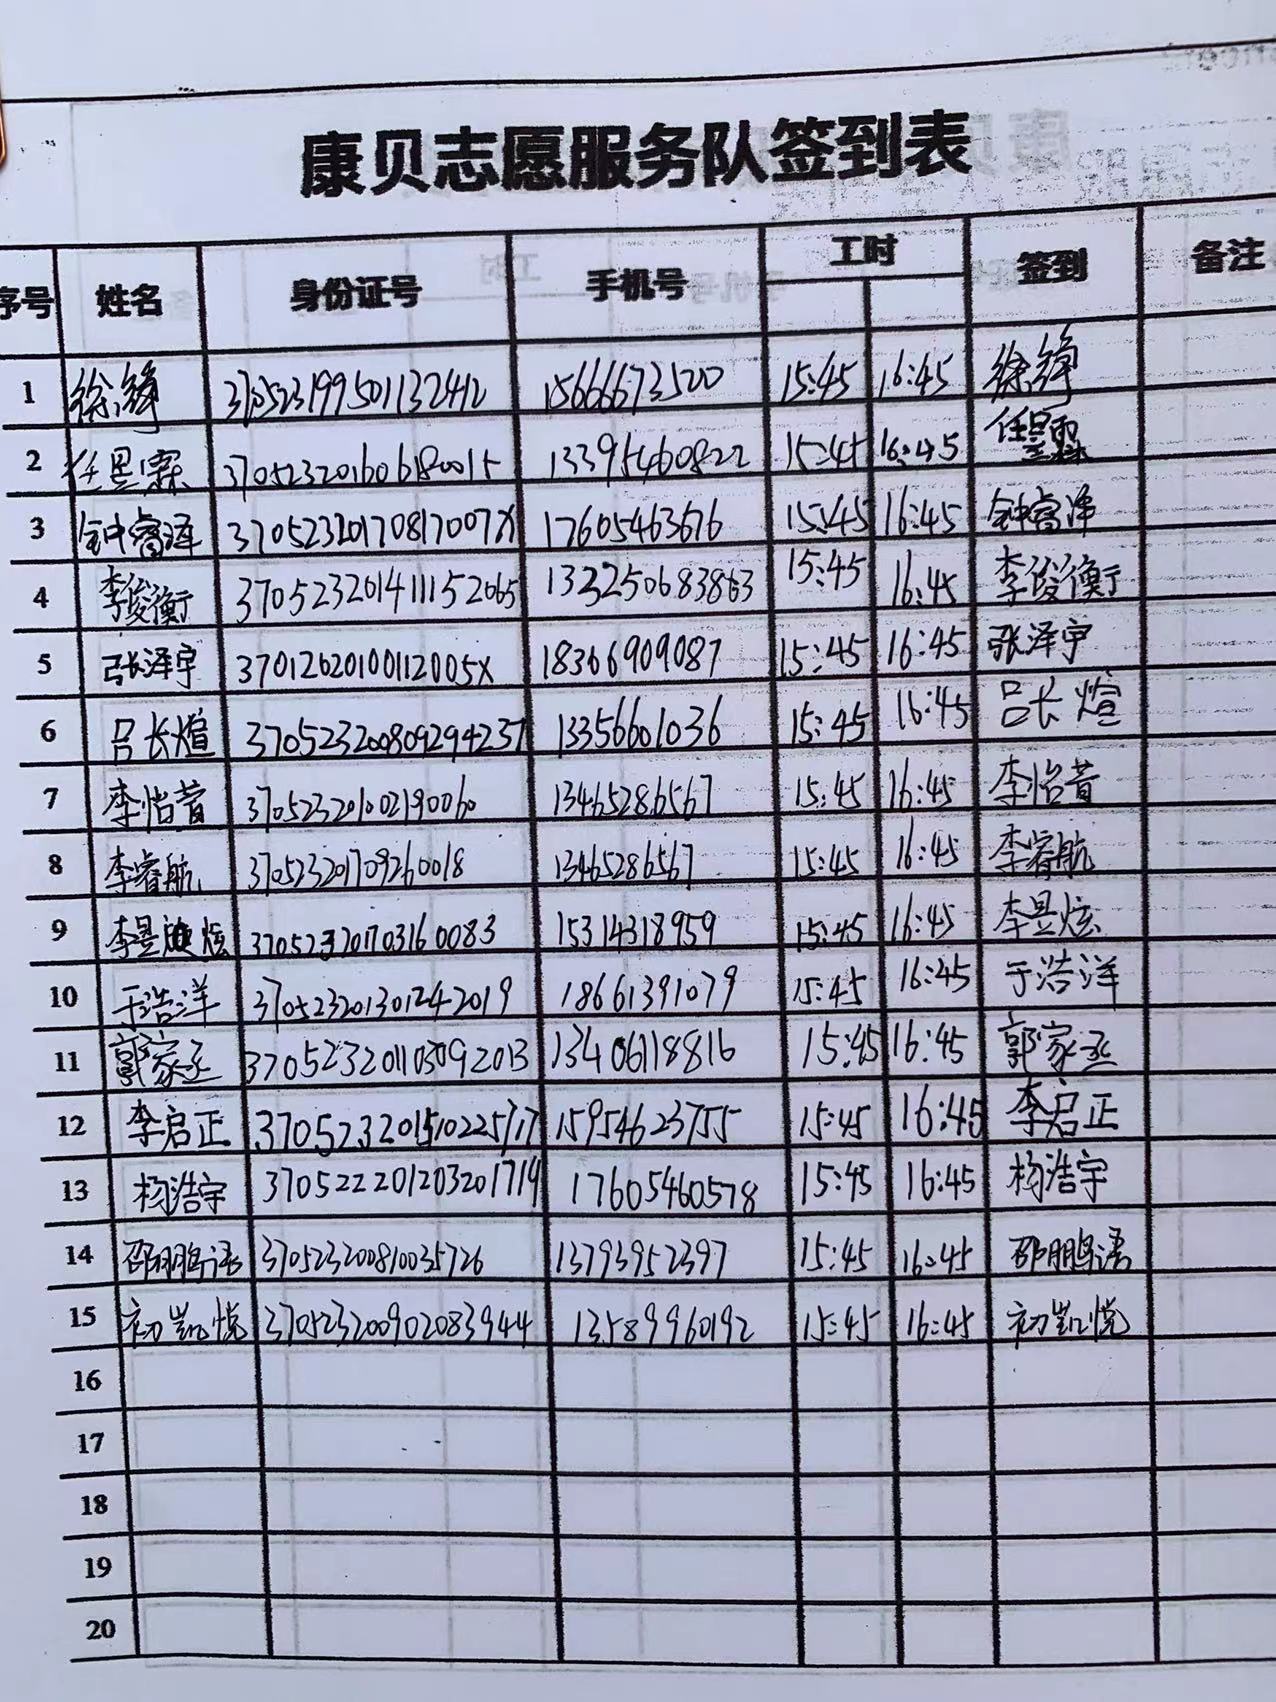 康贝志愿服务队签到表
序号 姓名 身份证号 手机号 工时 签到 备注
1 徐铮 370523199501132412 15666673520 15:45 16:45 徐铮
2 任昱霖 370523201606180015 13395460822 15:45 16:45 任昱霖
3 钟睿泽 37052320170817007X 17605463676 15:45 16:45 钟睿泽
4 李俊衡 370523201411152065 15:45 16:45 李俊衡
5 张泽宇 37012620100112005X 18366909087 15:45 16:45 张泽宇
6 吕长煊 370523200809294237 13356601036 15:45 16:45 吕长煊
7 李怡萱 370523201002190060 13465286567 15:45 16:45 李怡萱
8 李睿航 370523201709260018 13465286567 15:45 16:45 李睿航
9 李昱炫 370523201703160083 15314318959 15:45 16:45 李昱炫
10 于浩洋 370523201301242019 18661391079 15:45 16:45 于浩洋
11 郭家丞 370523201103092013 13406118816 15:45 16:45 郭家丞
12 李启正 15954623755 15:45 16:45 李启正
13 杨浩宇 370522201203201714 17605460578 15:45 16:45 杨浩宇
14 邵鹏语 370523200810035726 13793952397 15:45 16:45 邵鹏语
15 初凯悦 370523200902083944 13589960192 15:45 16:45 初凯悦
16
17
18
19
20